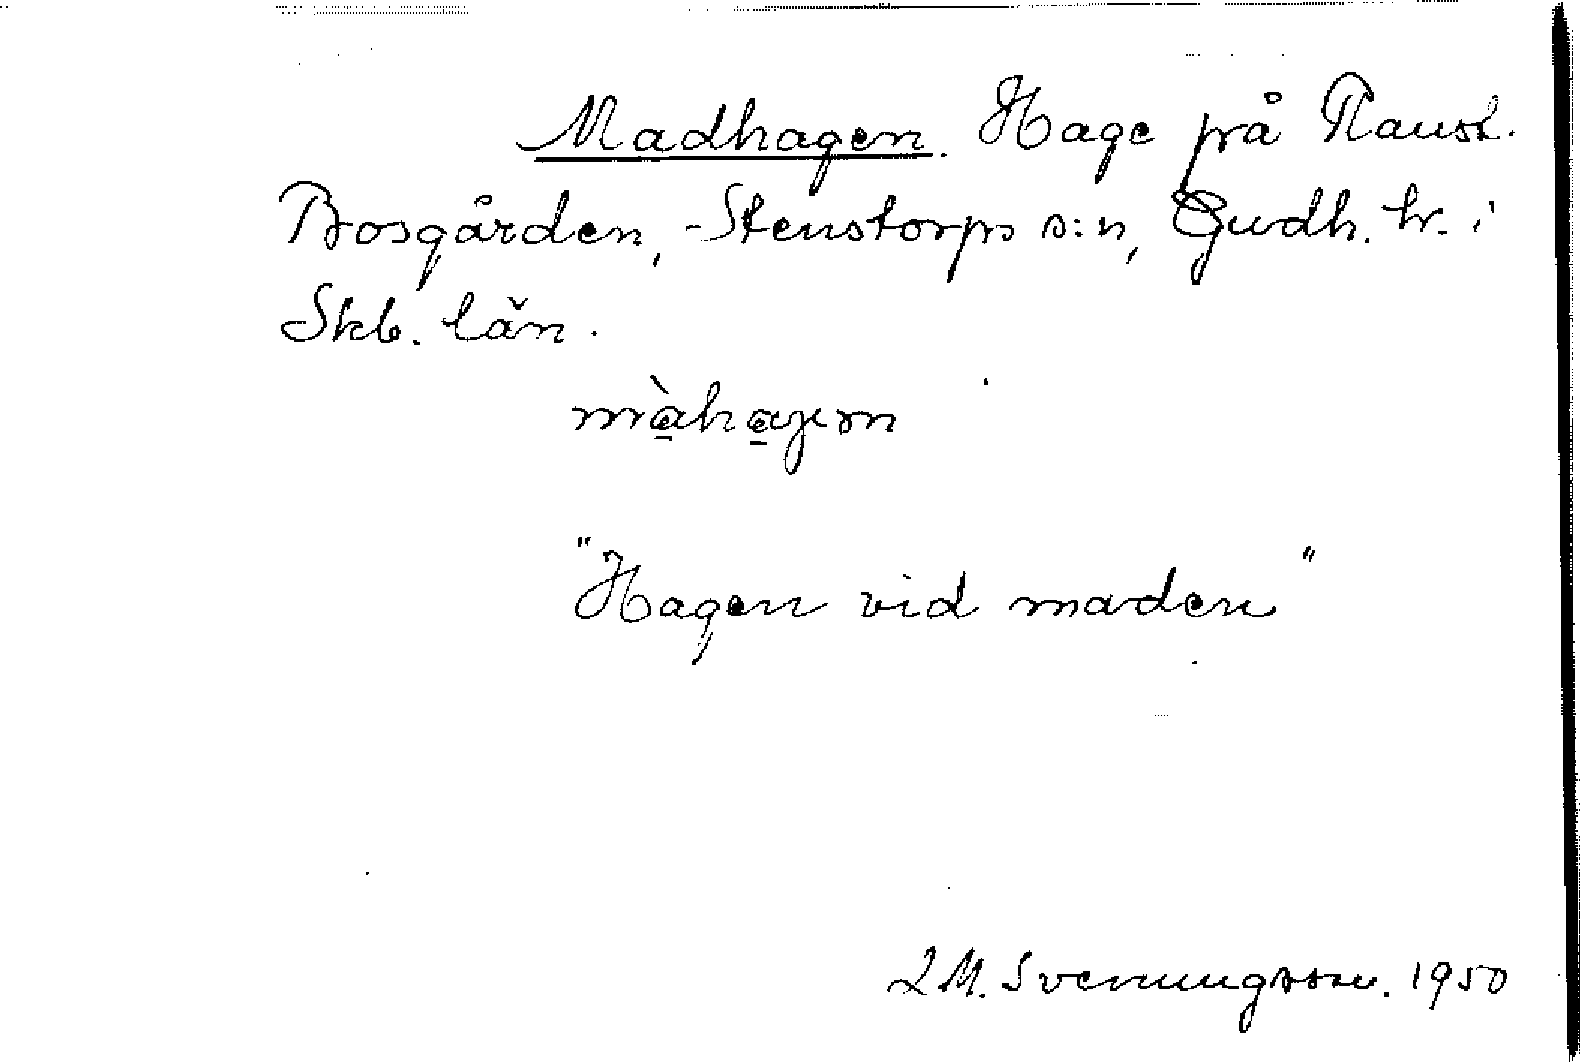 Madhagen. Hage på Raust.
Bosgården, Stenstorps s:n, Gudh. hr. i
Skb. län.
màhagen
"Hagen vid maden"
L M. Svenungsson. 1950